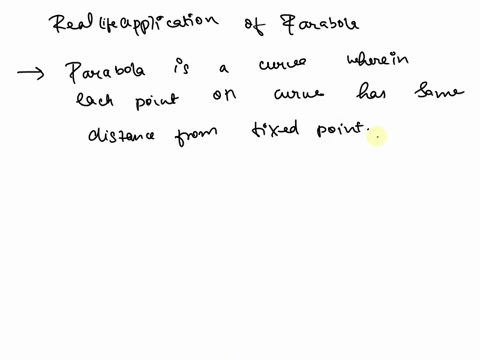 Real life application of Parabola
→ Parabola is a curve wherein
each point on curve has same
distance from fixed point.